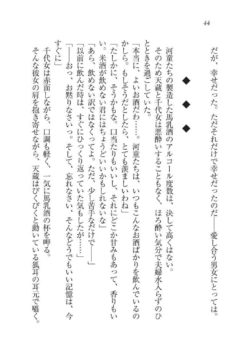 44
だが、幸せだった。ただそれだけで幸せだったのだ――愛し合う男女にとっては。
◆　◆　◆
河童たちの製造した馬乳酒のアルコール度数は、決して高くはない。
そのため天蔵と千代女は悪酔いすることもなく、ほろ酔い気分で夫婦水入らずのひ
とときを過ごしていた。
「本当に、よいお酒だわ……。河童たちは、いつもこんなお酒ばかりを飲んでいるの
でしょうね。だとしたら、とても羨ましいわね」
「たしかに、そうかもな。口当たりもいいし、それにどこか甘みもあって、香りもい
い。米酒が飲めない者にはちょうどいいかもしれないな」
「あら、飲めない訳ではなくってよ。ただ、少し苦手なだけで――」
「以前に飲んだ時は、すぐにひっくり返っていた気もしたが……」
「――おっ、お黙りなさいっ。そして、忘れなさい、そんなどうでもいい記憶は、今
すぐにっ」
千代女は赤面しながら、口調も軽く、一気に馬乳酒の杯を呷る。
そんな彼女の肩を抱き寄せながら、天蔵はぴくぴくと動いている狐耳の耳元で囁く。